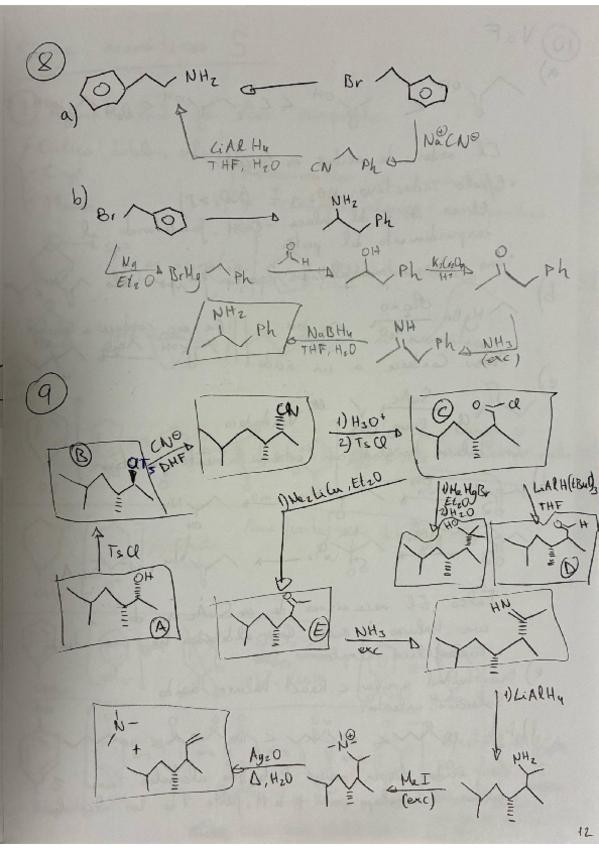 8
NH2
Br
a)
LiAlH4
THF, H2O
CN Ph
Na⊕CN⊖
b)
Br
NH2
Ph
Mg
Et2O
BrMg Ph
O
H
OH
Ph
K2Cr2O7
H+
O
Ph
NH2
Ph
NaBH4
THF, H2O
NH
Ph
NH3
(exc)
9
B
OTs
CN⊖
DMF
CN
1) H3O+
2) TsCl
C
O Cl
TsCl
1) Me2LiCu, Et2O
1) MeMgBr
Et2O
2) H2O
LiAlH(tBuO)3
THF
OH
A
HO
O H
D
O
E
NH3
exc
HN
1) LiAlH4
N
+
Ag2O
Δ, H2O
N⊕
MeI
(exc)
NH2
12